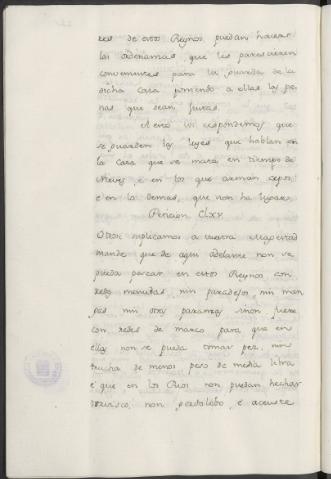 res de estos Reynos, puedan hacer
las ordenanzas, que les parescieren
convenientes para la guarda de la
dicha caza poniendo a ellas las pe
nas que sean justas.
A esto vos respondemos que
se guarden las leyes que hablan en
la caza que se mata en tiempo de
nieves, e en los que arman cepos
e en lo demas, que non ha lugar.
Peticion Clxv.
Otrosi suplicamos a vuestra Magestad
mande que de aqui adelante non se
pueda pescar en estos Reynos con
redes menudas, nin nin man
gas nin otra paranza sinon fuere
con redes de marco para que en
ellas non se pueda tomar pez, nin
trucha de menos peso de media libra
e que en los Rios non puedan hechar
non e